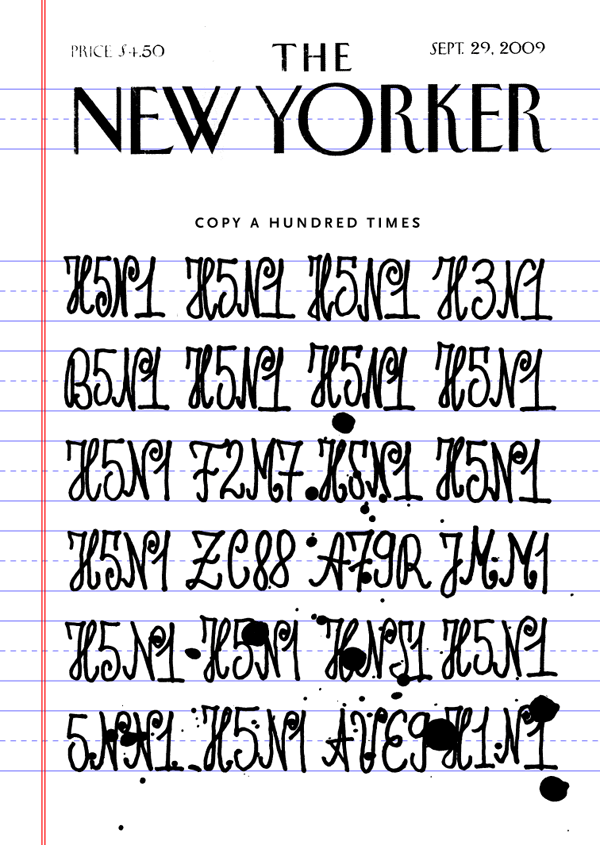 PRICE $4.50 THE SEPT. 29, 2009
NEW YORKER
COPY A HUNDRED TIMES
H5N1 H5N1 H5N1 H3N1
B5N1 H5N1 H5N1 H5N1
H5N1 F2M7 HSN1 H5N1
H5N1 ZC88 A79R JMM1
H5N1 H5N1 HNS1 H5N1
5NN1 H5N1 AVE9 H1N1